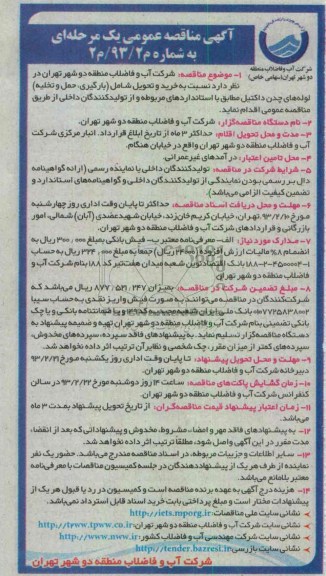 آگهی مناقصه عمومی یک مرحله‌ای
به شماره ۹۳/۲/م۲
شرکت آب و فاضلاب منطقه
دو شهر تهران (سهامی خاص)
۱- موضوع مناقصه: شرکت آب و فاضلاب منطقه دو شهر تهران در
نظر دارد نسبت به خرید و تحویل شامل (بارگیری، حمل و تخلیه)
لوله‌های چدن داکتیل مطابق با استانداردهای مربوطه و از تولیدکنندگان داخلی از طریق
مناقصه عمومی اقدام نماید.
۲- نام دستگاه مناقصه‌گزار: شرکت آب و فاضلاب منطقه دو شهر تهران.
۳- مدت و محل تحویل اقلام: حداکثر ۳ ماه از تاریخ ابلاغ قرارداد. انبار مرکزی شرکت
آب و فاضلاب منطقه دو شهر تهران واقع در خیابان هنگام.
۴- محل تامین اعتبار: درآمدهای غیرعمرانی.
۵- شرایط شرکت در مناقصه: تولیدکنندگان داخلی یا نماینده رسمی (ارائه گواهینامه
دال بر رسمی بودن نمایندگی از تولیدکنندگان داخلی و گواهینامه‌های استاندارد و
تضمین کیفیت الزامی می‌باشد).
۶- مهلت و محل دریافت اسناد مناقصه: حداکثر تا پایان وقت اداری روز چهارشنبه
مورخ ۹۳/۲/۱۰. تهران، خیابان کریم خان زند، خیابان شهید عضدی (آبان) شمالی، امور
بازرگانی و قراردادهای شرکت آب و فاضلاب منطقه دو شهر تهران.
۷- مدارک مورد نیاز: الف- معرفی‌نامه معتبر ب- فیش بانکی بمبلغ ۳۰۰,۰۰۰ ریال به
انضمام ۸٪ مالیات ارزش افزوده (۲۴,۰۰۰ ریال) جمعا به مبلغ ۳۲۴,۰۰۰ ریال به حساب
بانک اقتصاد نوین شعبه میدان هفت تیر کد ۱۸۸ بنام شرکت آب و
فاضلاب منطقه دو شهر تهران.
۸- مبلغ تضمین شرکت در مناقصه: به میزان ۸۷۷/۵۲۱/۲۴۷ ریال می‌باشد که
شرکت‌کنندگان در مناقصه می‌توانند به صورت فیش واریز نقدی به حساب سیبا
بانک ملی ایران شعبه و یا ضمانتنامه بانکی و یا چک
بانکی تضمینی بنام شرکت آب و فاضلاب منطقه دو شهر تهران تهیه و ضمیمه پیشنهاد به
دستگاه مناقصه‌گزار تسلیم نماید. به پیشنهادهای فاقد سپرده، سپرده‌های مخدوش،
سپرده‌های کمتر از میزان مقرر، چک شخصی و نظایر آن ترتیب اثر داده نخواهد شد.
۹- مهلت و محل تحویل پیشنهاد: تا پایان وقت اداری روز یکشنبه مورخ ۹۳/۲/۲۱
دبیرخانه شرکت آب و فاضلاب منطقه دو شهر تهران.
۱۰- زمان گشایش پاکت‌های مناقصه: ساعت ۱۳ روز دوشنبه مورخ ۹۳/۲/۲۲ در سالن
کنفرانس شرکت آب و فاضلاب منطقه دو شهر تهران.
۱۱- زمان اعتبار پیشنهاد قیمت مناقصه‌گران: از تاریخ تحویل پیشنهاد بمدت ۳ ماه
می‌باشد.
۱۲- به پیشنهادهای فاقد مهر و امضا، مشروط، مخدوش و پیشنهاداتی که بعد از انقضاء
مدت مقرر در این آگهی واصل شود، مطلقا ترتیب اثر داده نخواهد شد.
۱۳- سایر اطلاعات و جزییات مربوطه، در اسناد مناقصه مندرج می‌باشد. حضور یک نفر
نماینده از طرف هر یک از پیشنهاددهندگان در جلسه کمیسیون مناقصات با معرفی‌نامه
معتبر بلامانع می‌باشد.
۱۴- هزینه درج آگهی به عهده برنده مناقصه است و کمیسیون در رد یا قبول هر یک از
پیشنهادات مختار است و مبلغ پرداختی بابت خرید اسناد قابل استرداد نمی‌باشد.
نشانی سایت ملی مناقصات: http://iets.mporg.ir
نشانی سایت شرکت آب و فاضلاب منطقه دو شهر تهران: http://www.tpww.co.ir
نشانی سایت شرکت مهندسی آب و فاضلاب کشور: http://www.nww.ir
نشانی سایت بازرسی: http://tender.bazresi.ir
شرکت آب و فاضلاب منطقه دو شهر تهران